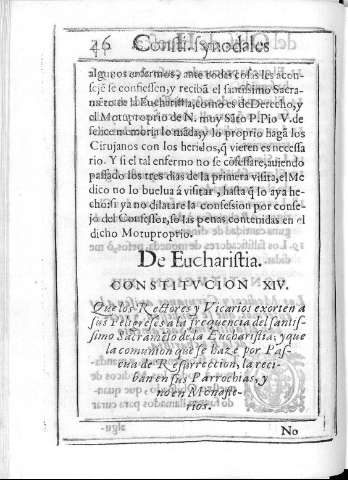 26 Consti. synodales
algunos enfermos, ante todas cosas les acon-
sejẽ se confiessen, y recibã el santissimo Sacra-
mẽto de la Eucharistia, como es de Derecho, y
el Motuproprio de N. muy Sãto P. Pio V. de
felice memoria lo mãda; y lo proprio hagã los
Cirujanos con los heridos, q̃ vieren es necessa
rio. Y si el tal enfermo no se cõfessare, auiendo
passado los tres dias de la primera visita, el Me
dico no lo buelua â visitar, hasta q̃ lo aya he-
cho: si ya no dilatare la confession por conse-
jo del Confessor, so las penas contenidas en el
dicho Motuproprio.
De Eucharistia.
CONSTITVCION XIV.
Que los Rectores y Vicarios exorten a
sus Feligreses a la frequencia del santis-
simo Sacramẽto de la Eucharistia; y que
la comunion que se haze por Pas-
cua de Resurreccion, la reci-
ban en sus Parrochias, y
no en Monaste-
rios.
No